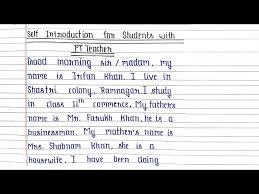 Self Introduction for Students with
PT Teacher
Good morning sir/madam, my
name is Irfan Khan. I live in
Shastri colony, Ramnagar. I study
in class 11th commerce. My father's
name is Mr. Farukh Khan, he is a
businessman. My mother's name is
Mrs. Shabnam Khan, she is a
housewife. I have been doing